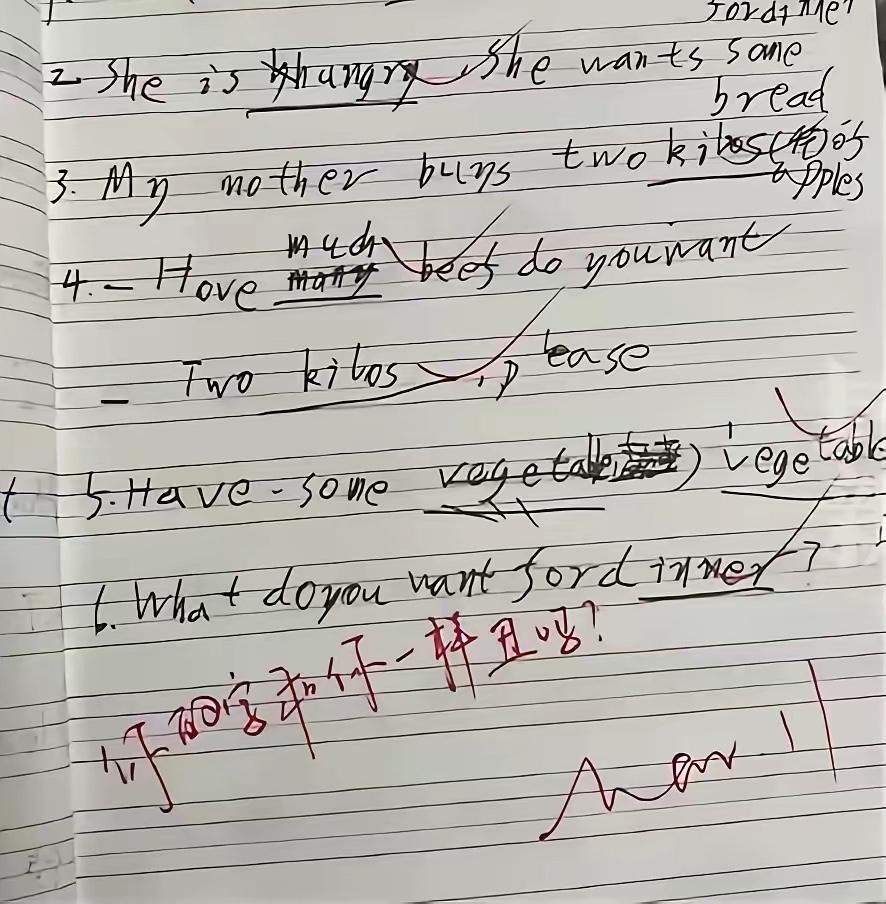 for dinner?
2. She is hungry. She wants some
bread
3. My mother buys two kilos(千克) of
apples
4. - Hove much beef do you want
- Two kilos, please
5. Have some vegetable) vegetable
6. What do you want for dinner?
你的字和你一样丑吗?